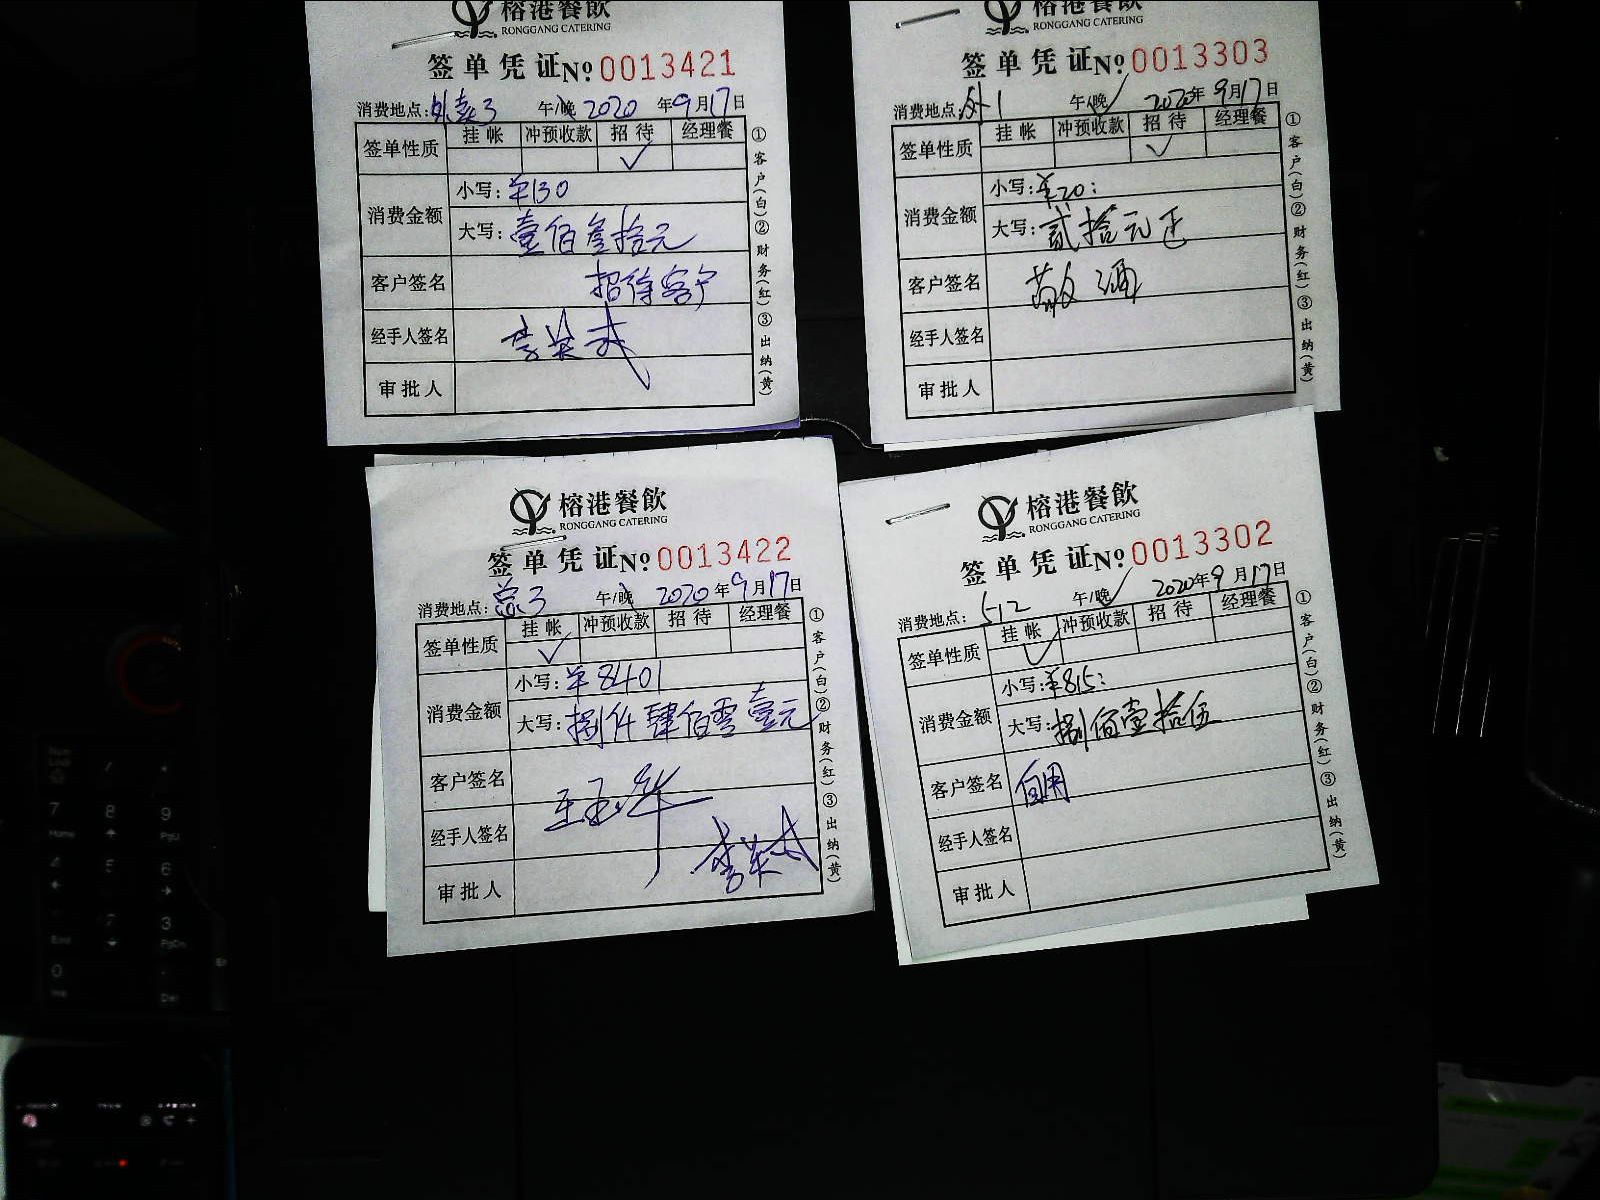 榕港餐飲
RONGGANG CATERING
签单凭证 No 0013421
消费地点: 外卖3 午/晚 2020年9月17日
签单性质 挂帐 冲预收款 招待 经理餐
✓
消费金额 小写: ¥130
大写: 壹佰叁拾元
客户签名 招待客户
经手人签名
审批人
①客户(白)②财务(红)③出纳(黄)
榕港餐飲
RONGGANG CATERING
签单凭证 No 0013303
消费地点: 外1 午/晚 2020年9月17日
签单性质 挂帐 冲预收款 招待 经理餐
✓
消费金额 小写: ¥20:
大写: 贰拾元正
客户签名
经手人签名
审批人
①客户(白)②财务(红)③出纳(黄)
榕港餐飲
RONGGANG CATERING
签单凭证 No 0013422
消费地点: 总3 午/晚 2020年9月17日
签单性质 挂帐 冲预收款 招待 经理餐
✓
消费金额 小写: ¥8401
大写: 捌仟肆佰零壹元
客户签名 王玉华
经手人签名
审批人
①客户(白)②财务(红)③出纳(黄)
榕港餐飲
RONGGANG CATERING
签单凭证 No 0013302
消费地点: 512 午/晚 2020年9月17日
签单性质 挂帐 冲预收款 招待 经理餐
✓
消费金额 小写: ¥815:
大写: 捌佰壹拾伍
客户签名 自用
经手人签名
审批人
①客户(白)②财务(红)③出纳(黄)
7 8 9
Home PgU
4 5 6
3
End PgDn
0
Ins Del